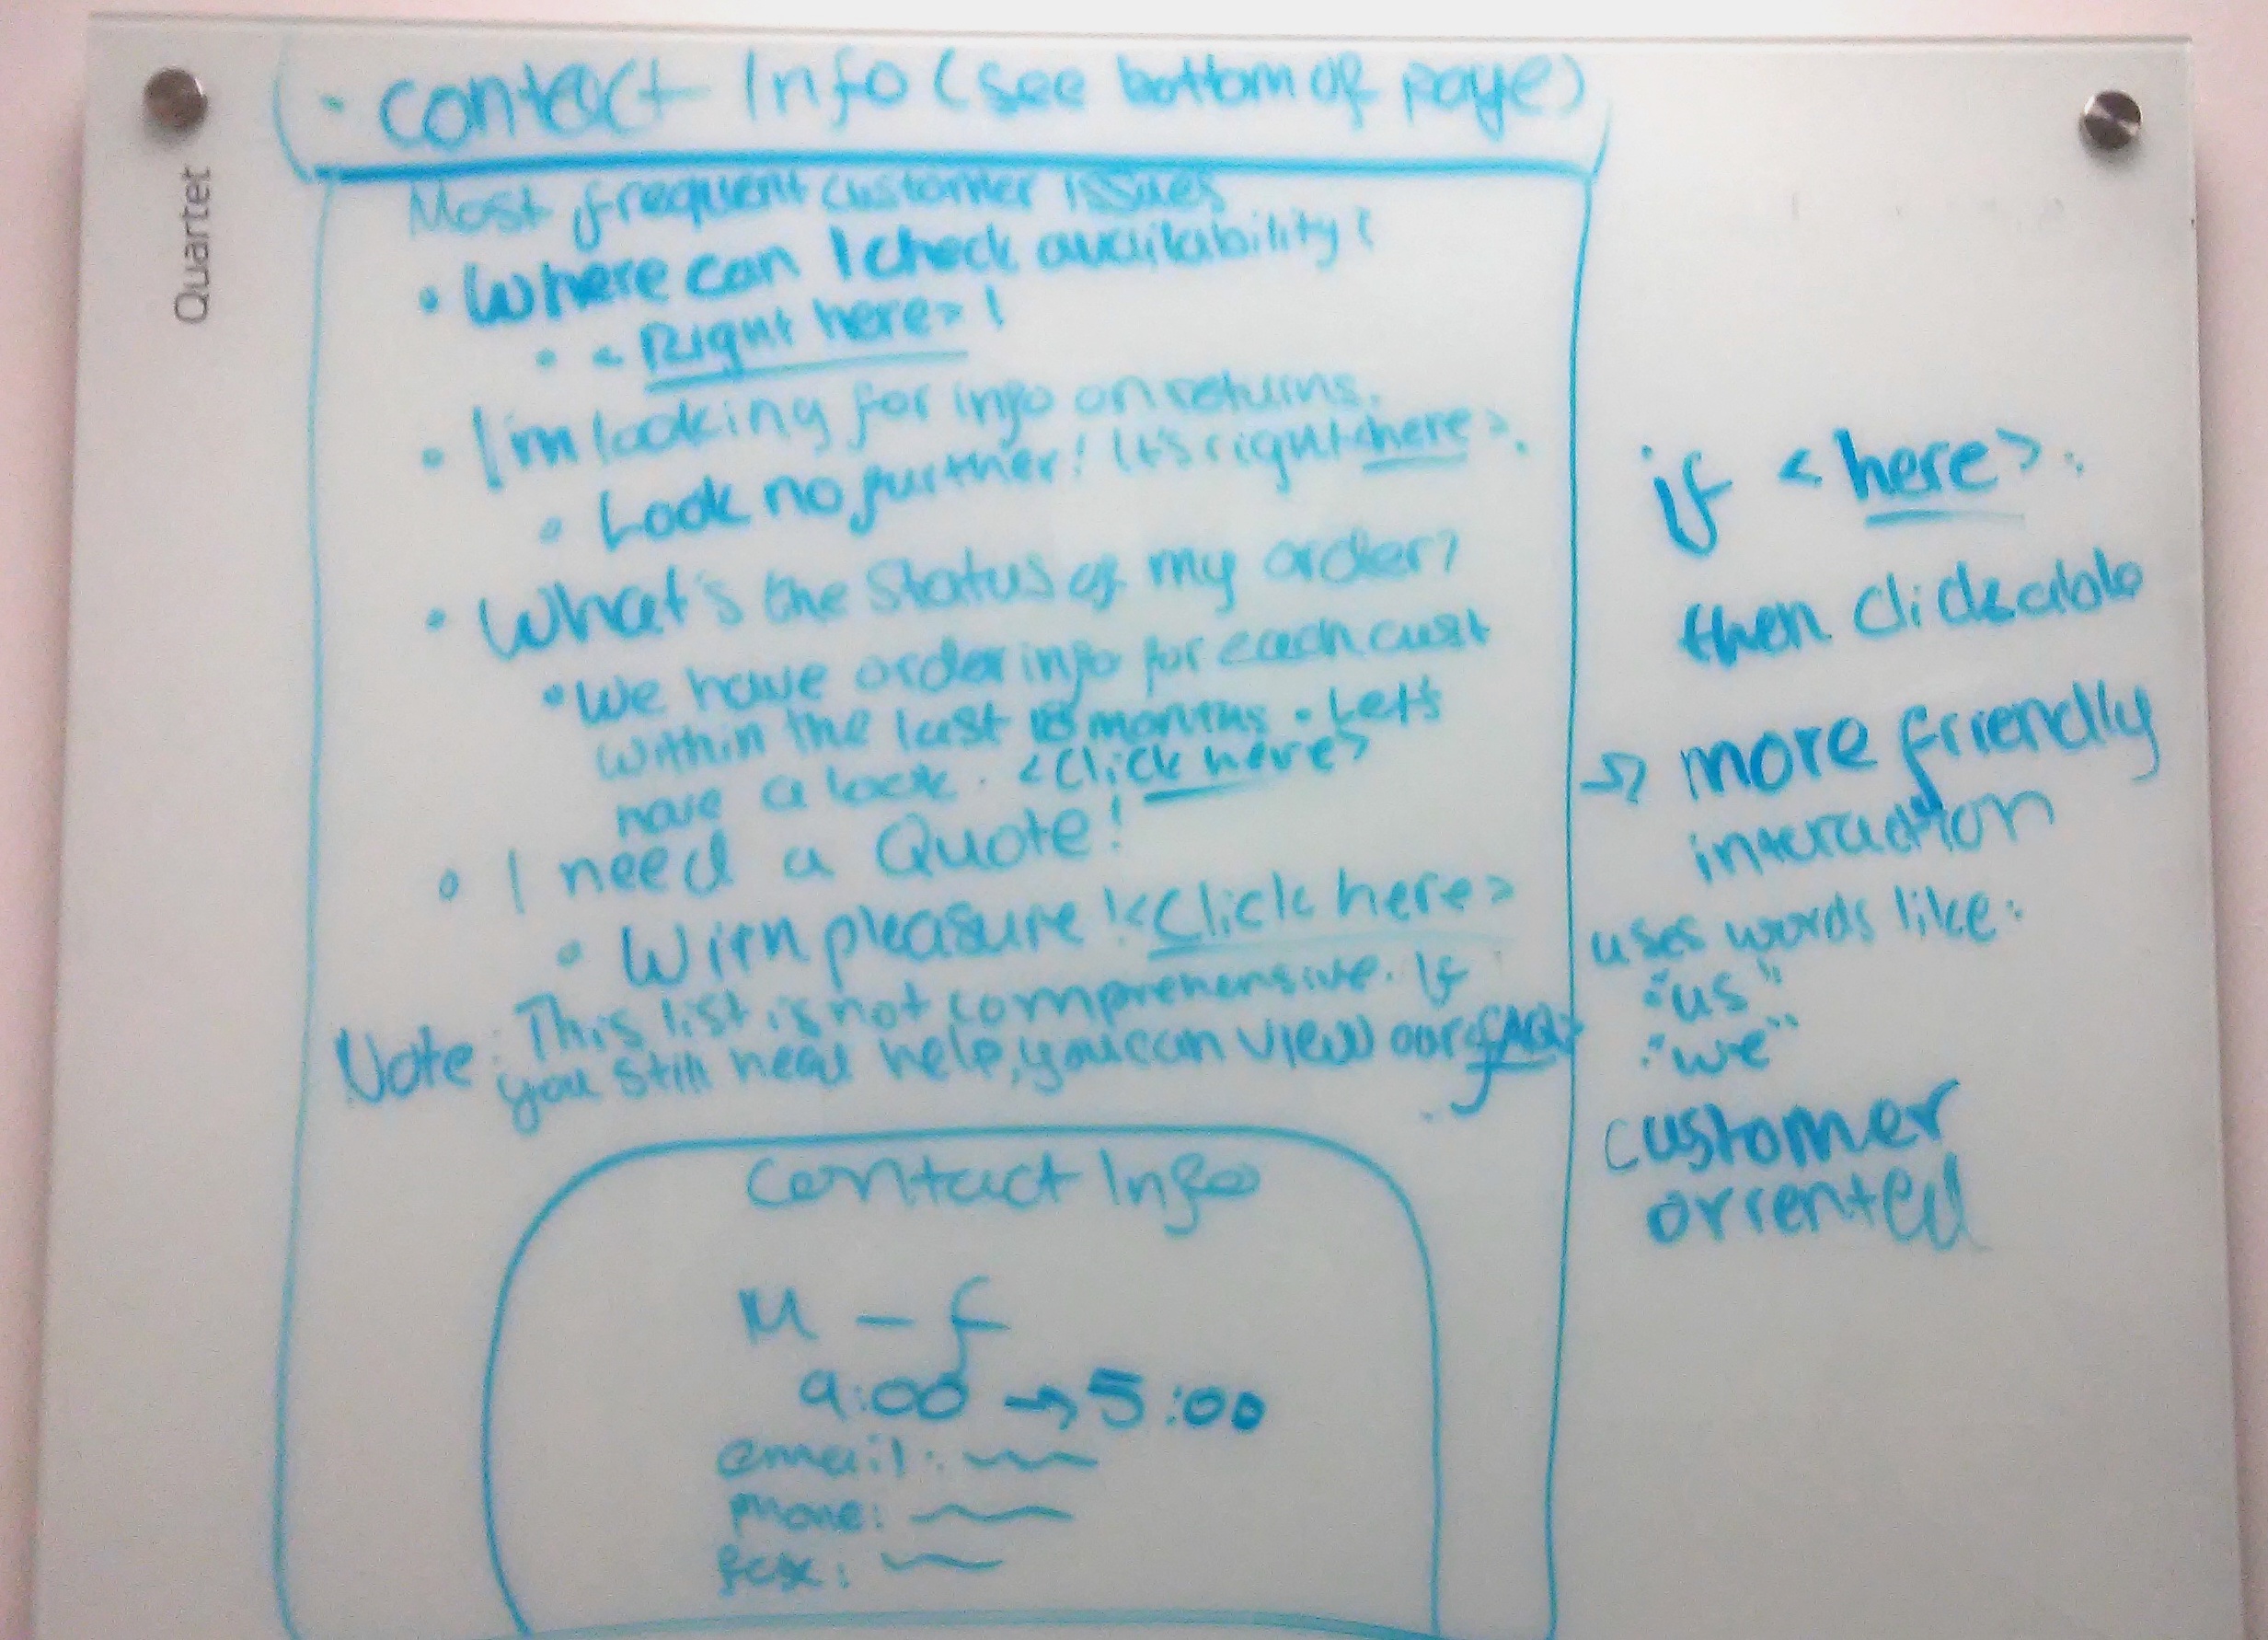 Quartet
· Contact Info (see bottom of page)
Most frequent customer issues
• Where can I check availability?
• <Right here>!
• I'm looking for info on returns.
• Look no further! It's right <here>.
• What's the status of my order?
• We have order info for each cust
within the last 18 months. Let's
have a look. <Click here>
• I need a Quote!
• With pleasure! <Click here>
Note: This list is not comprehensive. If
you still need help, you can view our <FAQ>
.
Contact Info
M - F
9:00 → 5:00
email:
phone:
fax:
if <here>.
then clickable
→ more friendly
interaction
uses words like:
"us"
"we"
customer
oriented